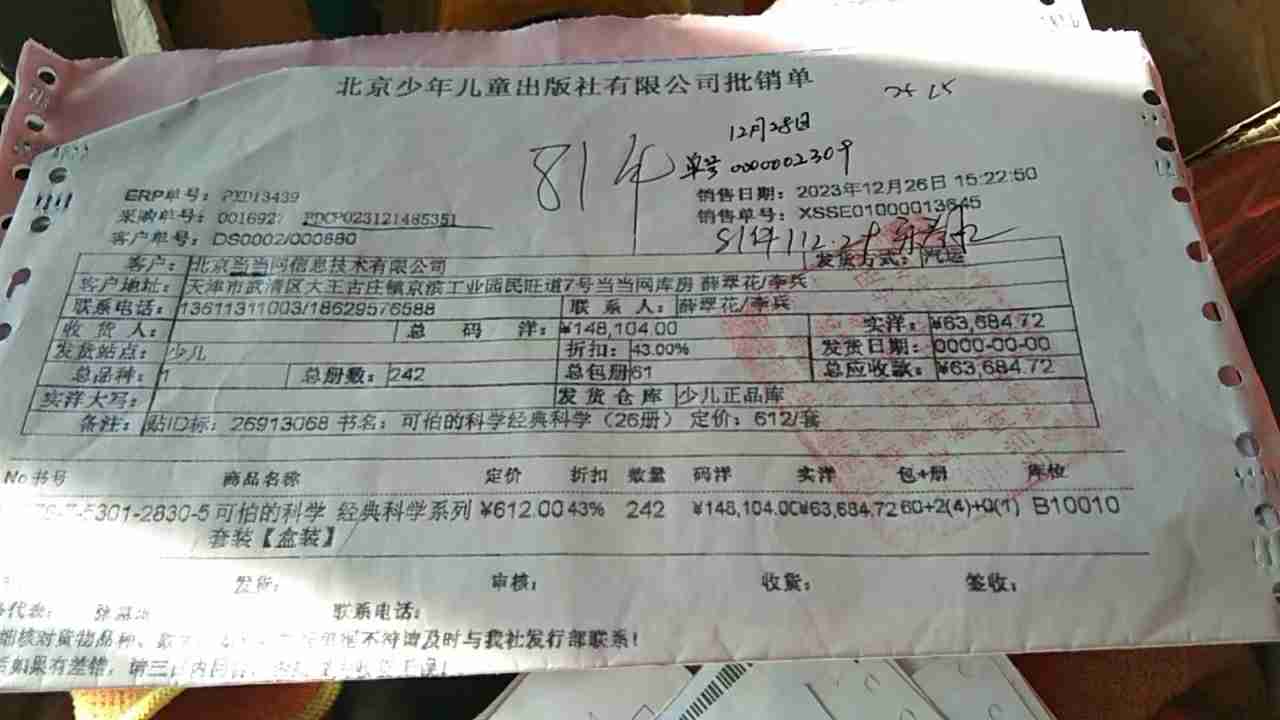 北京少年儿童出版社有限公司批销单
12月28日
81件 单号 0000002309
ERP单号: PXD13439 销售日期: 2023年12月26日 15:22:50
采购单号: 001692 PDCP023121485351 销售单号: XSSE01000013645
客户单号: DS0002/000880
客户: 北京当当网信息技术有限公司 发货方式: 汽运
客户地址: 天津市武清区大王古庄镇京滨工业园民旺道7号当当网库房 薛翠花/李兵
联系电话: 13611311003/18629576588 联系人: 薛翠花/李兵
收货人: 总码洋: ¥148,104.00 实洋: ¥63,684.72
发货站点: 少儿 折扣: 43.00% 发货日期: 0000-00-00
总品种: 1 总册数: 242 总包册61 总应收款: ¥63,684.72
实洋大写: 发货仓库 少儿正品库
备注: 贴ID标: 26913068 书名: 可怕的科学经典科学（26册） 定价: 612/套
No书号 商品名称 定价 折扣 数量 码洋 实洋 包+册 库位
5301-2830-5 可怕的科学 经典科学系列 ¥612.00 43% 242 ¥148,104.00 ¥63,684.72 60+2(4)+0(1) B10010
套装【盒装】
发货: 审核: 收货: 签收:
代表: 联系电话:
细核对货物品种、 不符请及时与我社发行部联系!
如果有差错, 请三 内